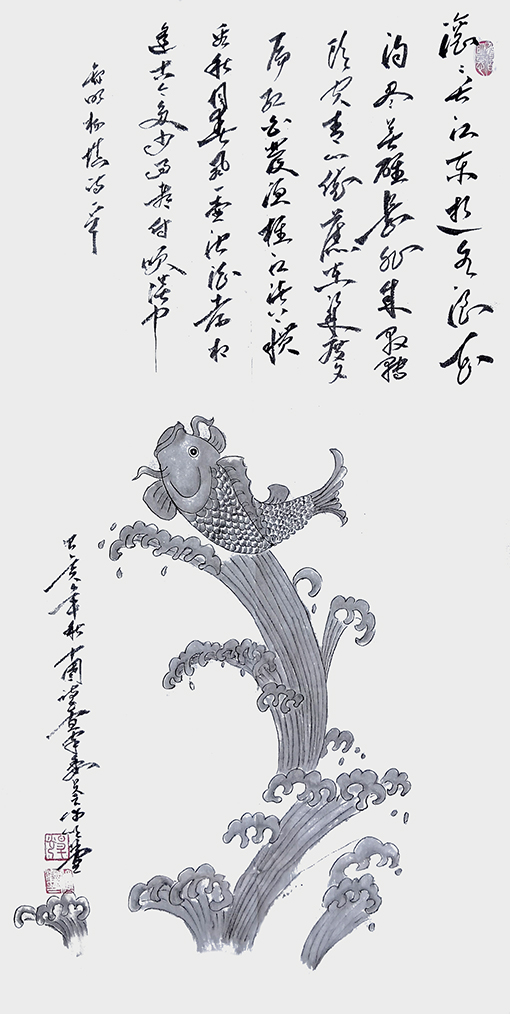 滚滚长江东逝水浪花
淘尽英雄是非成败转
头空青山依旧在几度夕
阳红白发渔樵江渚上惯
看秋月春风一壶浊酒喜相
逢古今多少事都付笑谈中
明杨慎诗一
己亥年秋中国